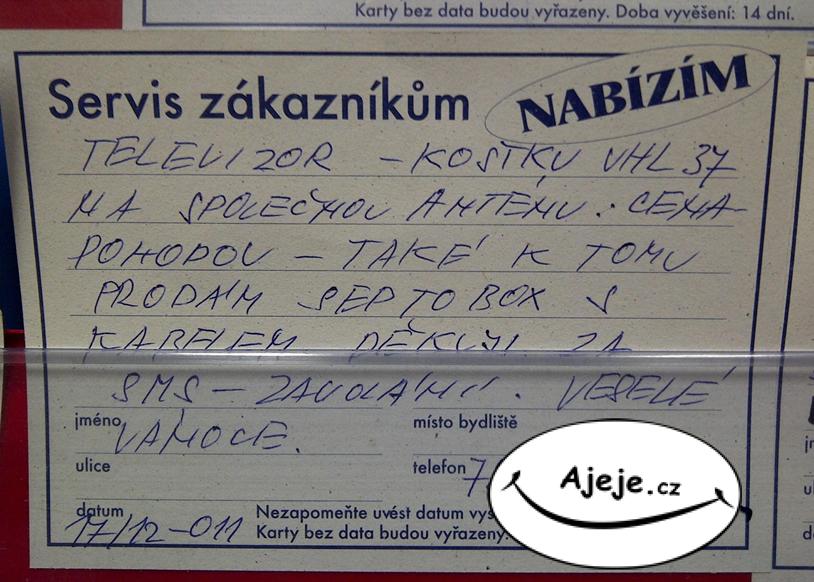 Karty bez data budou vyřazeny. Doba vyvěšení: 14 dní.
Servis zákazníkům NABÍZÍM
TELEVIZOR – KOSTKU VHL 37
NA SPOLEČNOU ANTÉNU. CENA
POHODOU – TAKÉ K TOMU
PRODÁM SEPTOBOX S
KABELEM DĚKUJI ZA
SMS – ZAVOLÁNÍ. VESELÉ
jméno místo bydliště
VÁNOCE.
ulice telefon 7
datum Nezapomeňte uvést datum vys
17/12-011 Karty bez data budou vyřazeny.
Ajeje.cz